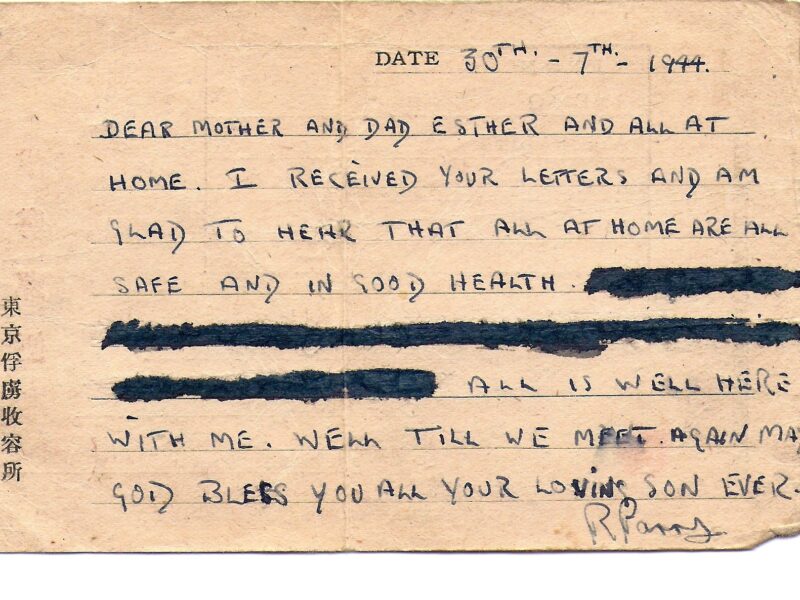 DATE 30TH. - 7TH - 1944.
DEAR MOTHER AND DAD ESTHER AND ALL AT
HOME. I RECEIVED YOUR LETTERS AND AM
GLAD TO HEAR THAT ALL AT HOME ARE ALL
SAFE AND IN GOOD HEALTH.
ALL IS WELL HERE
WITH ME. WELL TILL WE MEET AGAIN MAY
GOD BLESS YOU ALL YOUR LOVING SON EVER.
R Parry
東京俘虜收容所